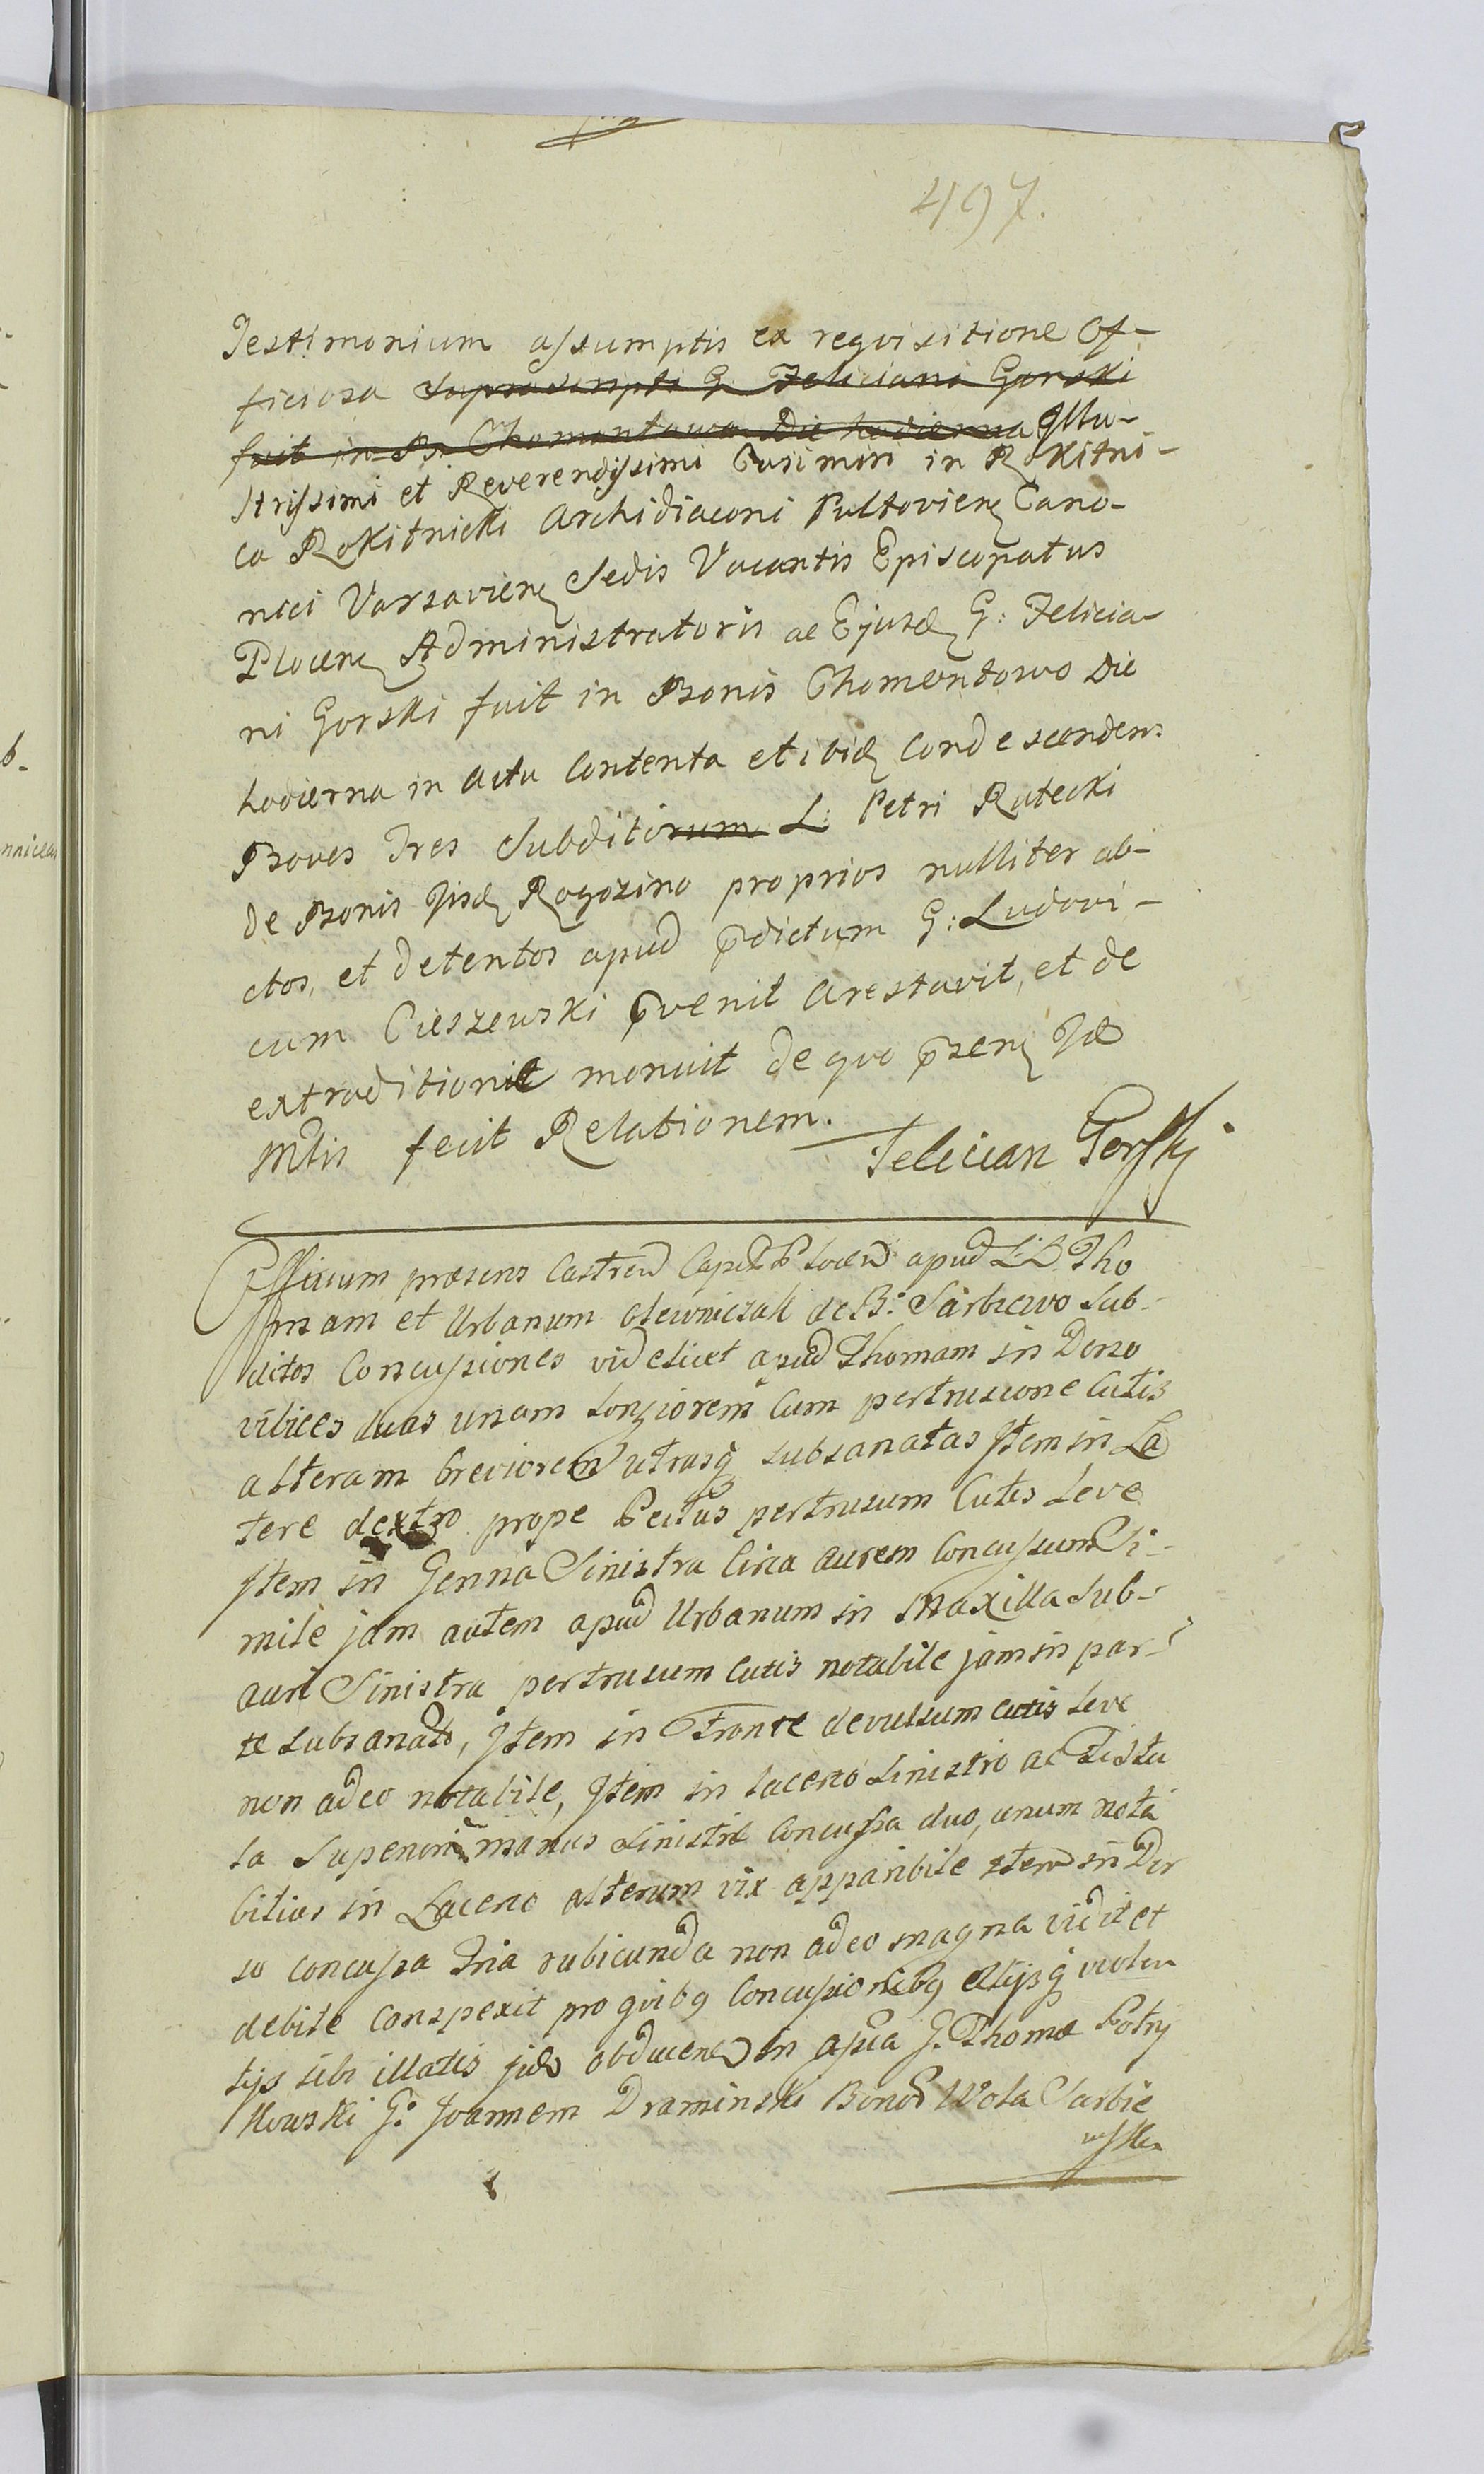 497.
Testimonium assumptis ex requisitione Of-
ficiosa suprascripti G. Feliciani Gorski
fuit in B: Chomentowo Die hodierna Illu-
strissimi et Reverendissimi Casimiri in Rokitni-
ca Rokitnicki Archidiaconi Pultovien Cano-
nici Varsavien Sedis Vacantis Episcopatus
Plocen Administratoris ac Ejusd G: Felicia-
ni Gorski fuit in Bonis Chomentowo Die
hodierna in actu contenta et ibid condescendens
Boves Tres Subditorum L: Petri Rutecki
de Bonis Iisd Rogozino proprios nulliter ab-
ctos, et detentos apud pdictum G: Ludovi-
cum Cieszewski pvenit arestavit, et de
extraditione monuit de quo psen Id
Mtis fecit Relationem.
Felician Gorski
Officium præsens Castren Capit Plocen apud LL Tho
mam et Urbanum Olewniczak de B: Sarbiewo Sub-
ditos Concussiones videlicet apud Thomam in Dorso
vibices duas unam longiorem cum pertrusione Cutis
alteram breviorem utrasq subsanatas Item in La
tere dextro prope Pectus pertrusum Cutis Leve
Item in Genna Sinistra Circa aurem Concussum Si-
mile jam autem apud Urbanum in Maxilla sub-
aure Sinistra pertrusum Cutis notabile jam in par-
te subsanato, Item in Fronte devulsum cutis Leve
non adeo notabile, Item in lacerto sinistro ac Fistu
la Superiori manus sinistræ concussa duo, unum nota
bilius in Lacerto alterum vix apparibile Item in Dor
so concussa tria rubicunda non adeo magna vidit et
debite conspexit pro quibg concussionibg alijsq violen
tijs sibi illatis jdo obducend in G. Thomæ Potry
kowski G: Joannem Draminski Bonor Wola Sarbie
wska